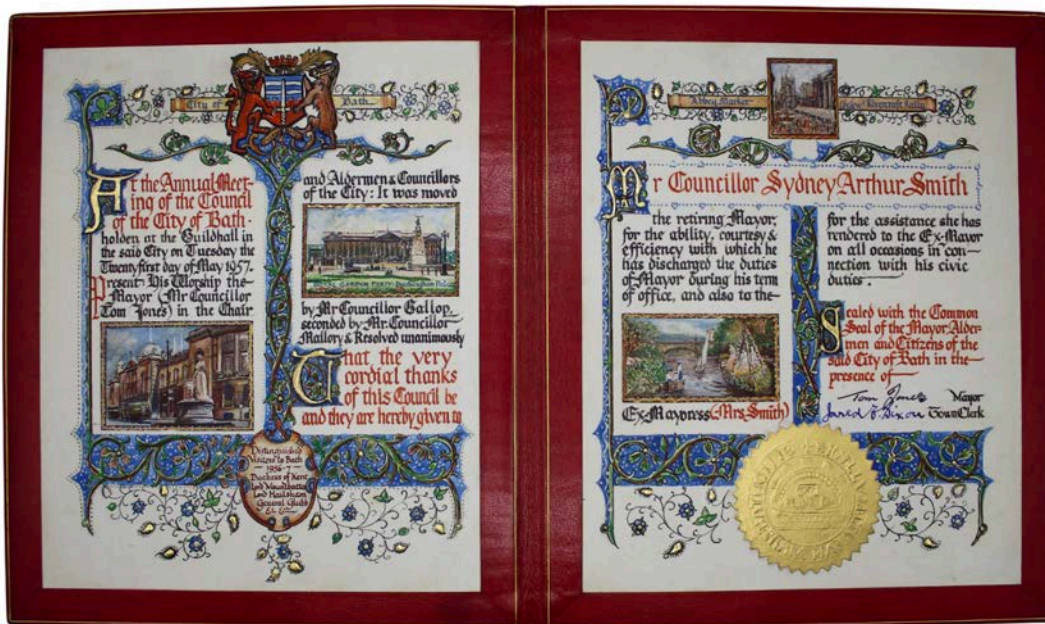 City of Bath
At the Annual Meet-
ing of the Council
of the City of Bath-
holden at the Guildhall in
the said City on Tuesday the
Twentyfirst day of May 1957.
Present: His Worship the
Mayor (Mr Councillor
Tom Jones) in the Chair
and Aldermen & Councillors
of the City: It was moved
GARDEN PARTY
by Mr Councillor Gallop,
seconded by Mr. Councillor
Mallory & Resolved unanimously
That the very
cordial thanks
of this Council be
and they are hereby given to
Distinguished
Visitors to Bath
1956-7
Duchess of Kent
Lord Mountbatten
Lord Hailsham
General Glubb
Abbey Market
Mr Councillor Sydney Arthur Smith
the retiring Mayor,
for the ability, courtesy &
efficiency with which he
has discharged the duties
of Mayor during his term
of office, and also to the
Ex-Mayoress (Mrs. Smith)
for the assistance she has
rendered to the Ex-Mayor
on all occasions in con-
nection with his civic
duties.
Sealed with the Common
Seal of the Mayor, Alder-
men and Citizens of the
said City of Bath in the
presence of
Tom Jones Mayor
Jared E. Dixon Town Clerk